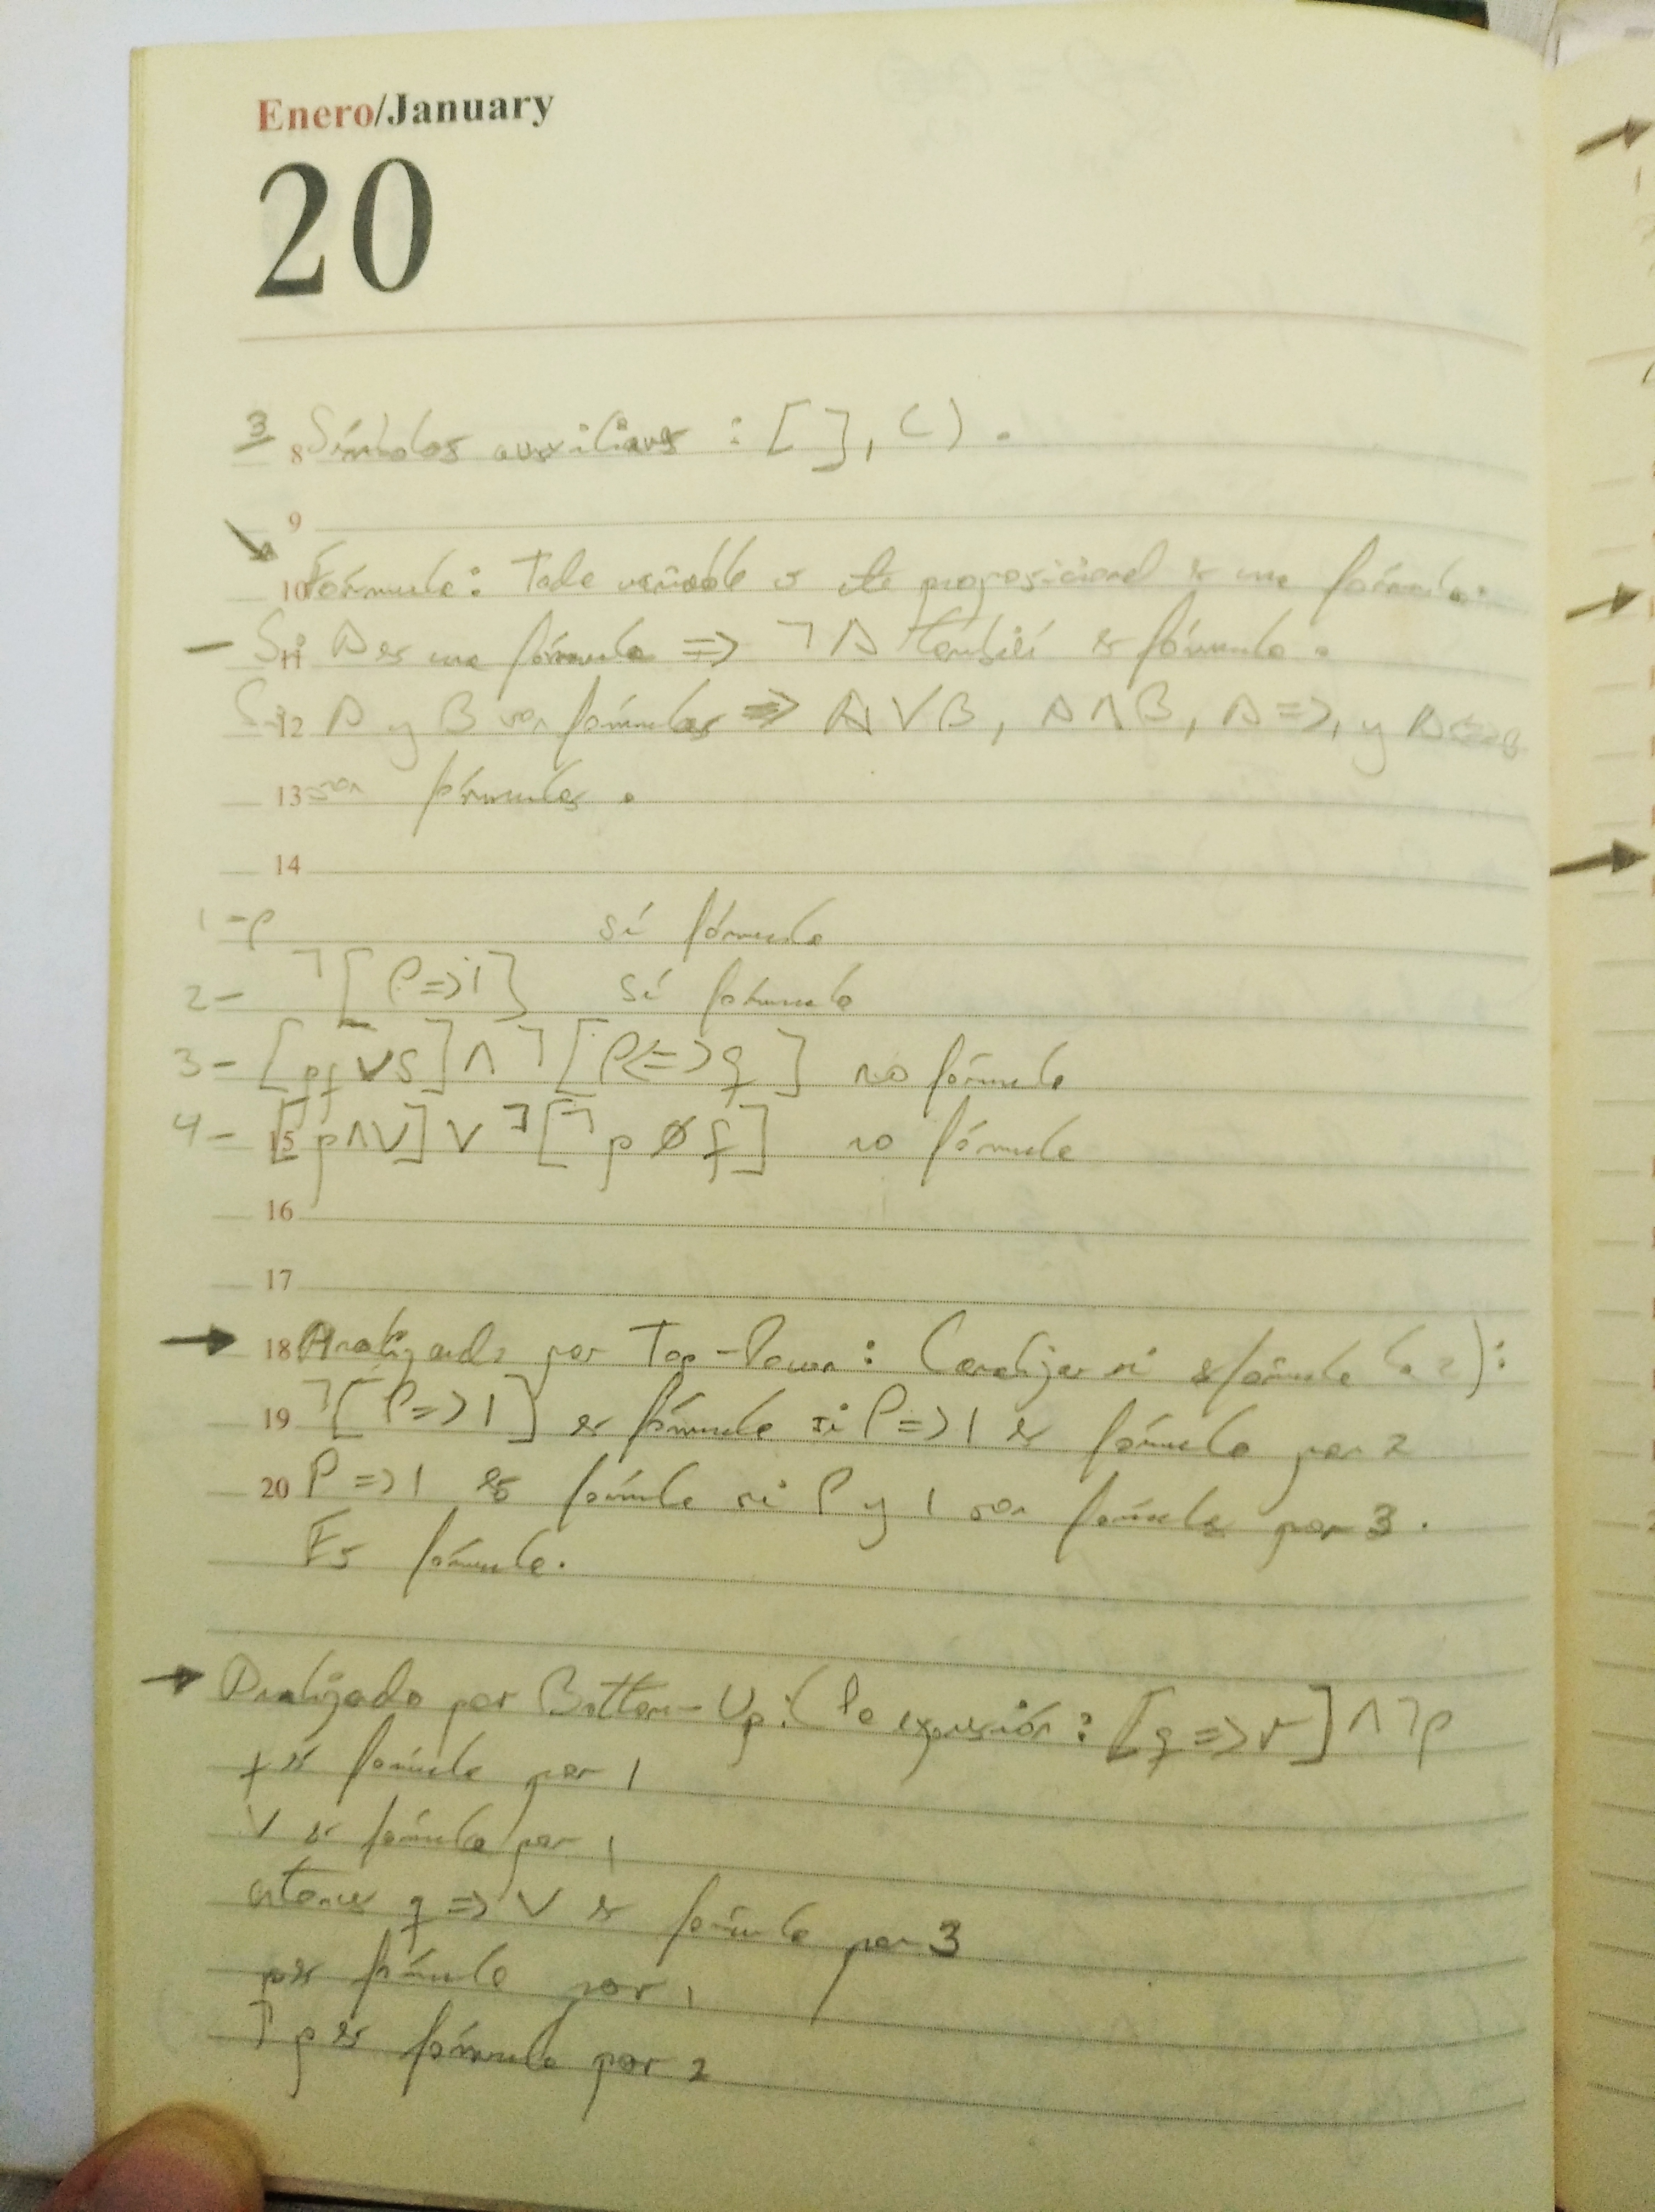 Enero/January
20
3 8 Símbolos auxiliares : [ ], ( ) .
9
10 Fórmula: Toda variable o cte proposicional es una fórmula.
- 11 Si A es una fórmula => ¬A también es fórmula.
12 Si A y B son fórmulas => A ∨ B, A ∧ B, A =>, y A <=> B
13 son fórmulas.
14
1 - p sí fórmula
2 - ¬[P => 1] sí fórmula
3 - [pq ∨ s] ∧ ¬[P <=> q] no fórmula
4 - 15 [p ∧ V] ∨ ¬[¬p Ø q] no fórmula
16
17
→ 18 Analizando por Top-Down: (analizar si es fórmula la 2):
19 ¬[P => 1] es fórmula si P => 1 es fórmula por 2
20 P => 1 es fórmula si P y 1 son fórmulas por 3.
Es fórmula.
→ Analizado por Bottom-Up: (la expresión: [q => r] ∧ ¬p
q es fórmula por 1
V es fórmula por 1
entonces q => V es fórmula por 3
p es fórmula por 1
¬p es fórmula por 2